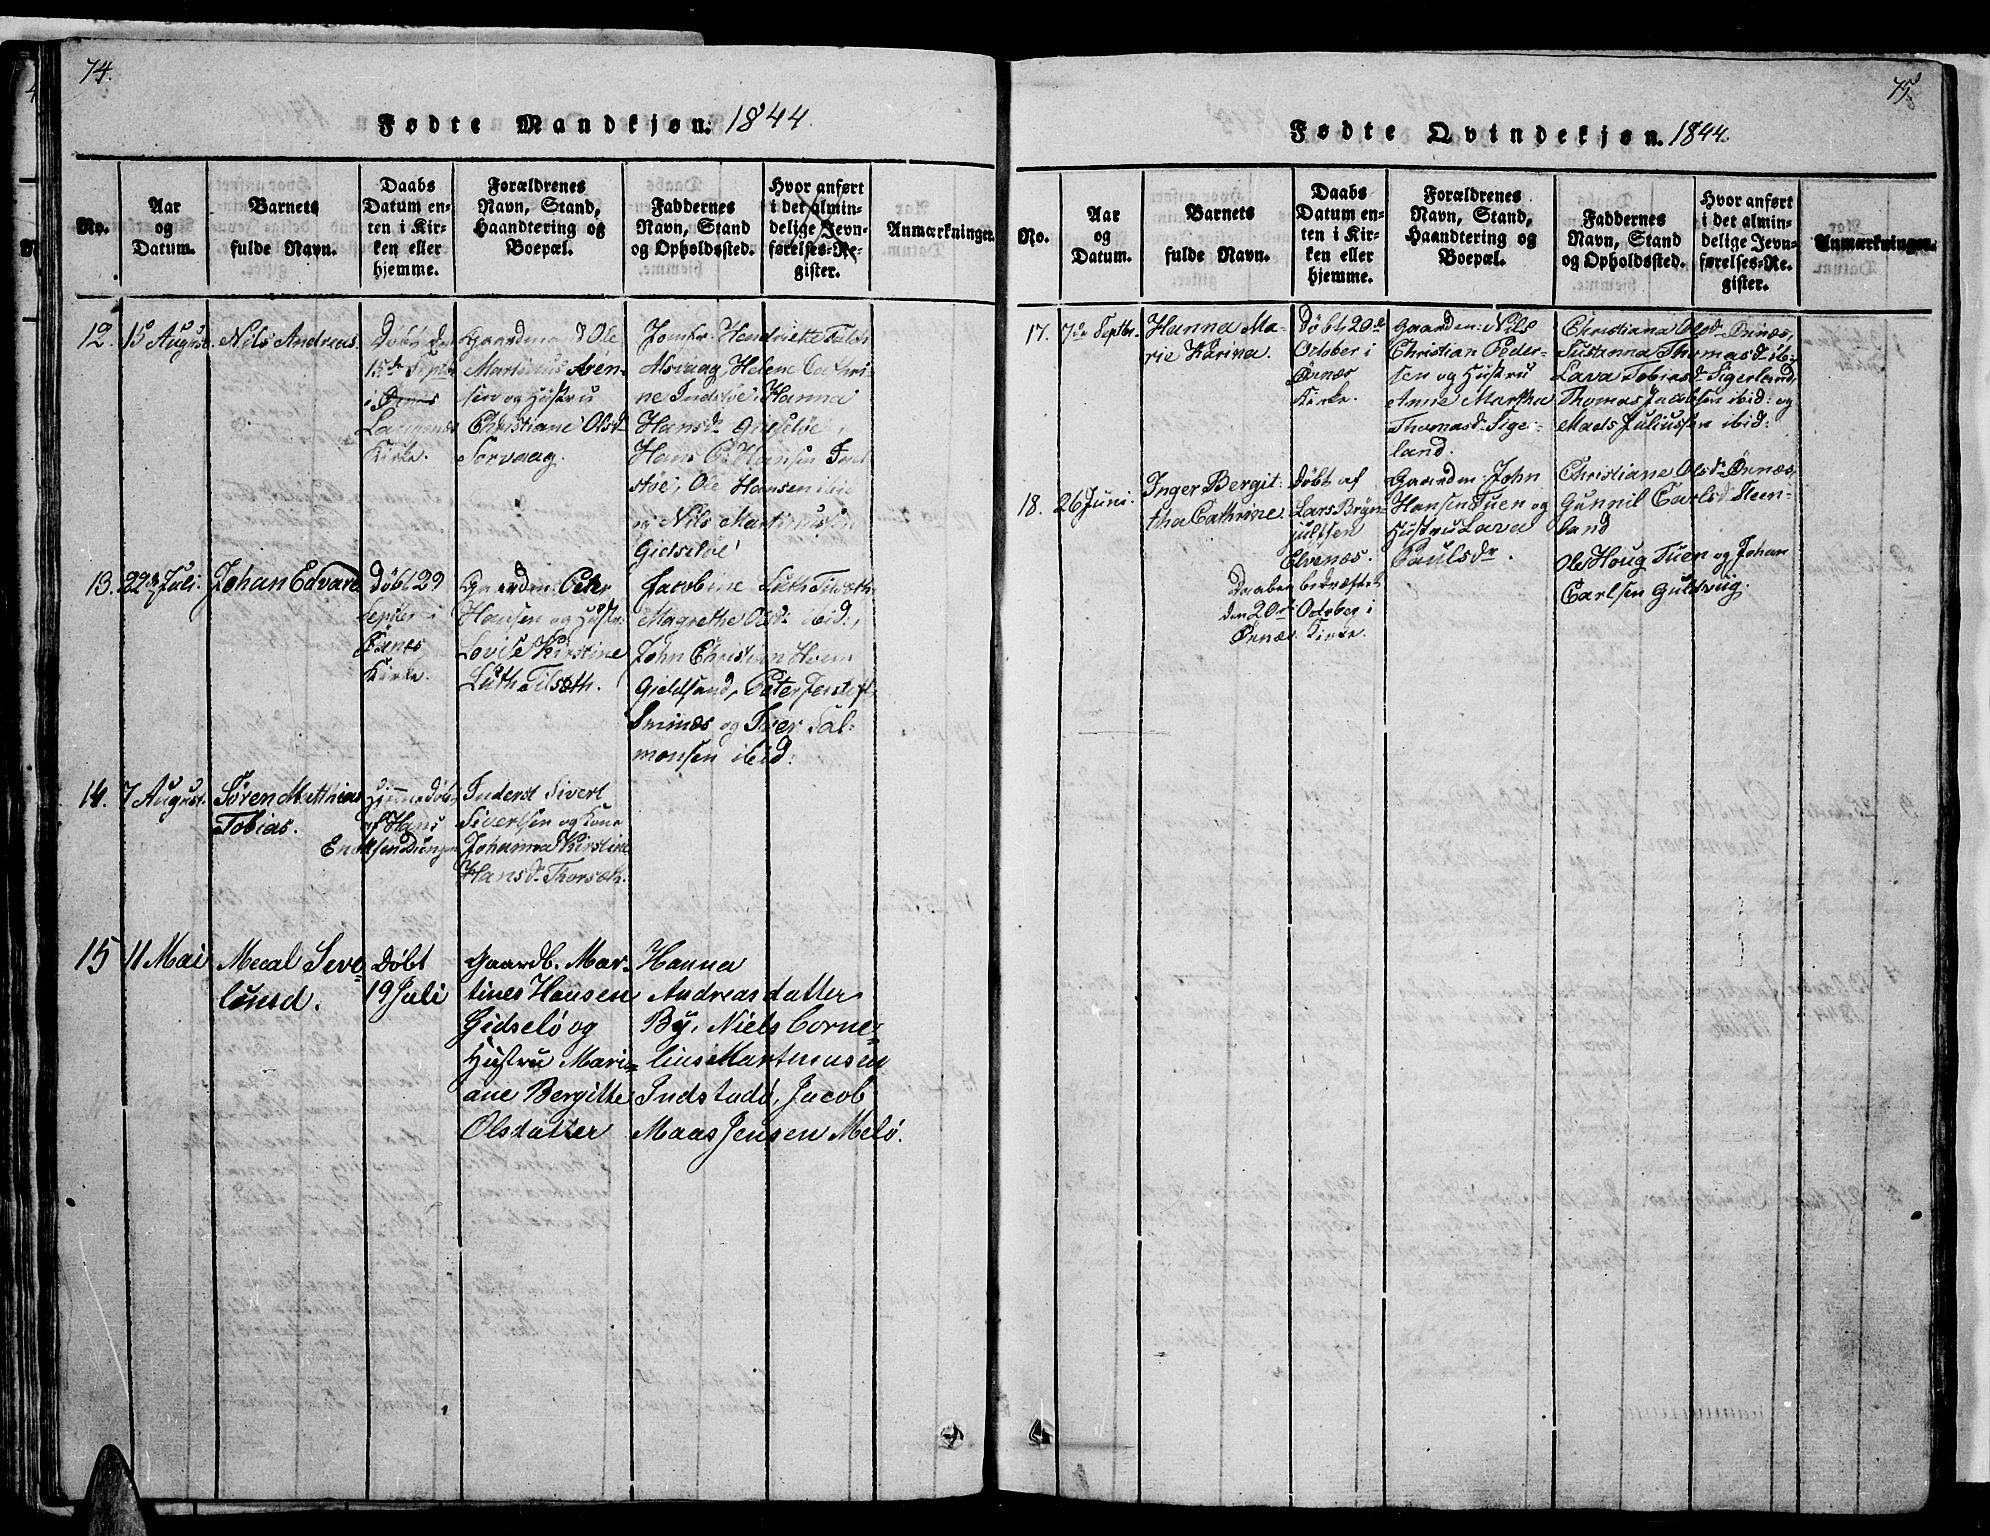 74.
Fødte Mandkjøn. 1844.
No.
Aar
og
Datum.
Barnets
fulde Navn.
Daabs
Datum en-
ten i Kir-
ken eller
hjemme.
Forældrenes
Navn, Stand,
Haandtering og
Boepæl.
Faddernes
Navn, Stand
og Opholdssted.
Hvor anført
i det almin-
delige Jevn-
førelses-Re-
gister.
Anmærkninger.
12. 15 August. Nils Andreas.
Døbt den
15de Septbr
i Ørnes
Kirke.
Ole
Martinus Aren-
sen og Hustru
Christiane Olsd.
Sorvaag.
Jomfr. Hendriette Falch
Alsvaag, Helene Cathri-
ne Indstøe, Hanna
Hansd. Gidseløe,
Hans P. Hansen Ind-
støe, Ole Hansen ibid
og Nils Martinussen
Gidseløe
13. 22de Juli. Johan Edvard
Døbt 29
Septbr i
Ørnes
Kirke.
Gaardm. Peter
Hansen og Hustr.
Lovise Kirstine
Luth Tilsæth.
Jacobine Luth Tilsæth
Magrethe Olsd. ibid.,
John Christian
Gjeldsand, Peter
og Iver Sal-
monsen ibid.
14. 7 August. Søren Mathias
Tobias.
Hjemmedøbt
af Hans
Inderst Sivert
Sivertsen og Kone
Johanna Kirstine
Hansd. Thorsæth.
15 11 Mai Mecal Seve-
lund.
Døbt
19 Juli
Gaardb. Mar-
tines Hansen
Gidselø og
Hustru Mari-
ane Bergitte
Olsdatter
Hanna
Andreasdatter
By, Niels Corne-
lius Martinusen
Indstadø, Jacob
Maas Jensen Melø.
75.
Fødte Qvindekjøn. 1844.
No.
Aar
og
Datum.
Barnets
fulde Navn.
Daabs
Datum en-
ten i Kir-
ken eller
hjemme.
Forældrenes
Navn, Stand,
Haandtering og
Boepæl.
Faddernes
Navn, Stand
og Opholdssted.
Hvor anført
i det almin-
delige Jevn-
førelses-Re-
gister.
Anmærkninger.
17. 7de Septbr. Hanna Ma-
rie Karina.
Døbt 20de
October i
Ørnæs
Kirke.
Gaardm. Nils
Christian Peder-
sen og Hustru
Anne Martha
Thomasd. Siger-
land.
Christiana Olsd. Ørnæs,
Susanna Thomasd. ib.
Lava Tobiasd. Sigerland,
Thomas Jacobsen ibid: og
Mads Juliussen ibid:
18. 26 Juni. Inger Bergit-
tha Cathrine.
Døbt af
Lars Bryn-
julfsen
Elvenæs.
Daaben bekræftet
den 20de October i
Ørnæs Kirke.
Gaardm. John
Hansen Tuen og
Hustru Lava
Paulsdr.
Christiane Olsd. Ørnæs
Gunnil Carlsd.
land
Ole Houg Tuen og Johan
Carlsen Guldsvig.